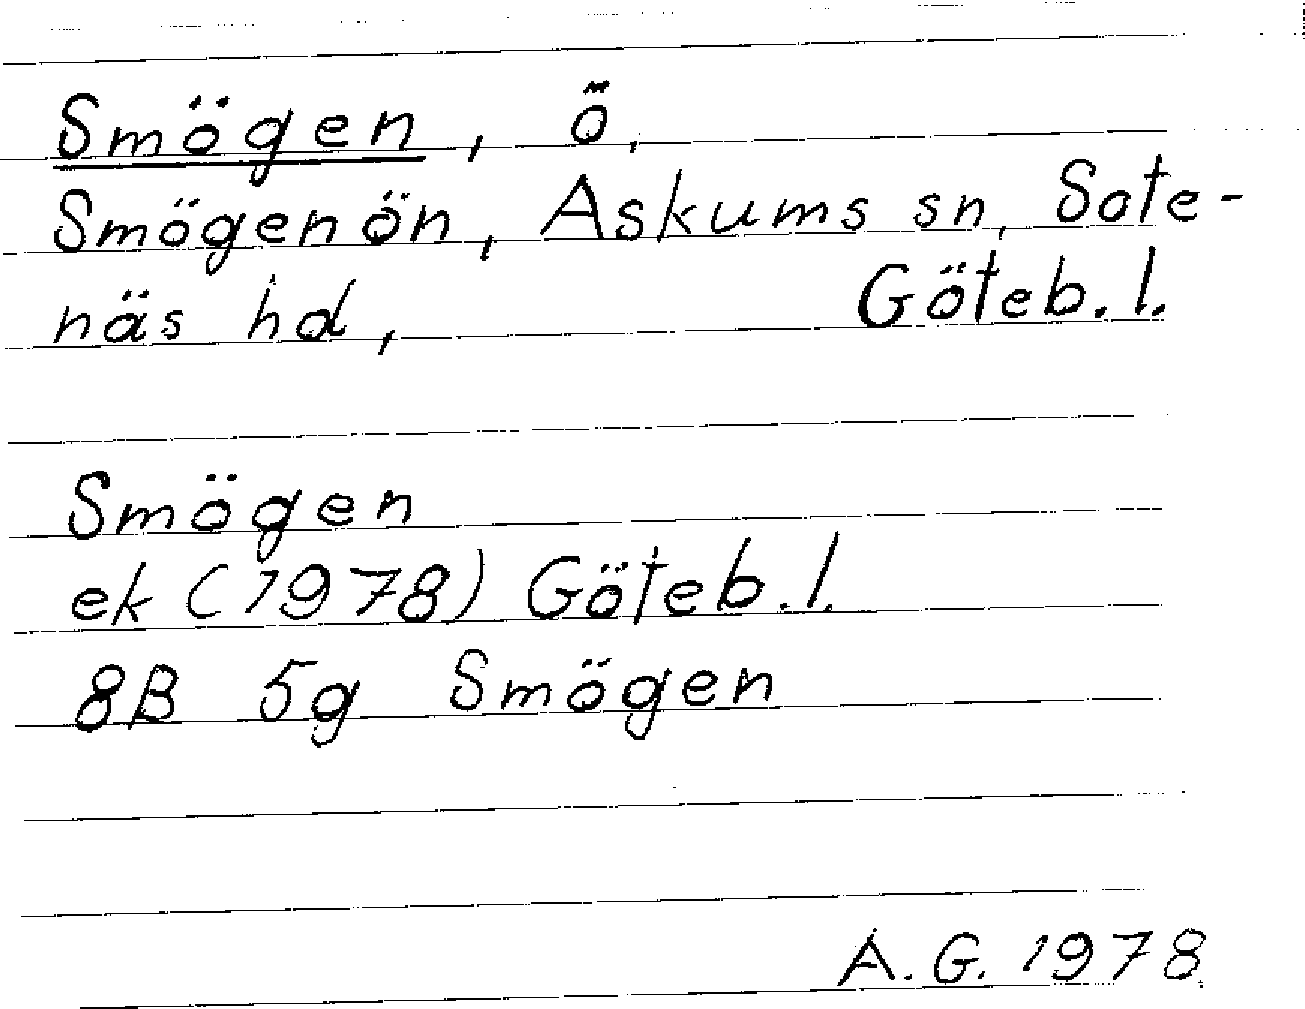 Smögen, ö,
Smögenön, Askums sn, Sote-
näs hd, Göteb. l.
Smögen
ek (1978) Göteb. l.
8B 5g Smögen
A. G. 1978